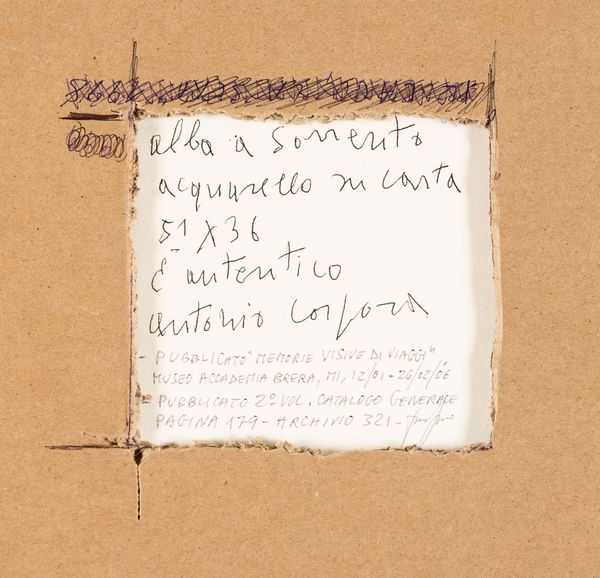 alba a Sorrento
acquarello su carta
51 x 36
È autentico
antonio corpora
- PUBBLICATO "MEMORIE VISIVE DI VIAGGI"
MUSEO ACCADEMIA BRERA, MI, 12/01 - 26/02/06
- PUBBLICATO 2º VOL. CATALOGO GENERALE
PAGINA 179 - ARCHIVIO 321 -